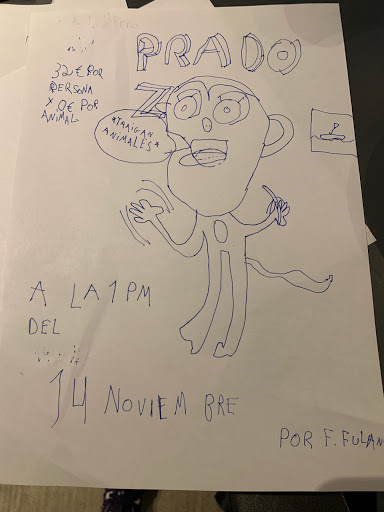 PRADO
Z
32€ POR
PERSONA
Y 0€ POR
ANIMAL
*TRAIGAN
ANIMALES*
A LA 1 PM
DEL
14 NOVIEMBRE
POR F. FULAN